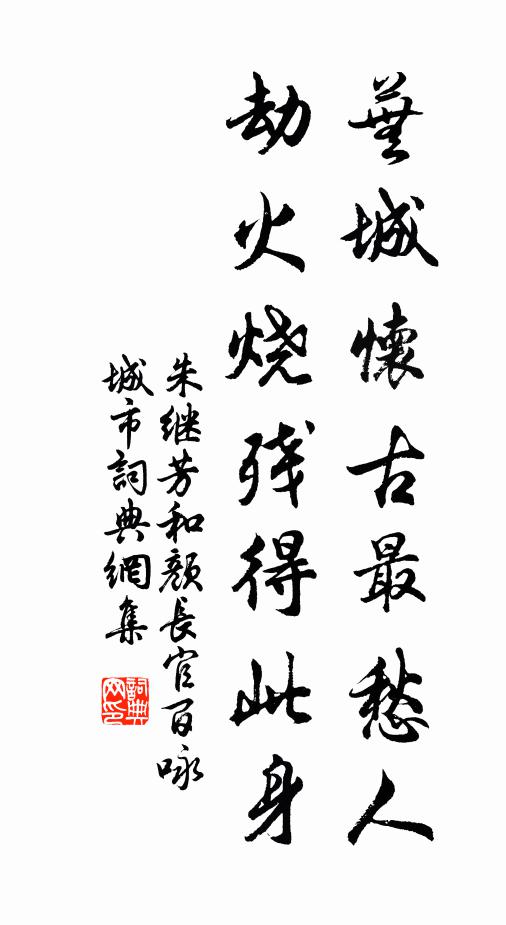 蕪城懷古最愁人
劫火烧残得此身
朱继芳和颜長官百咏
城市詞典網集
詞典
网印